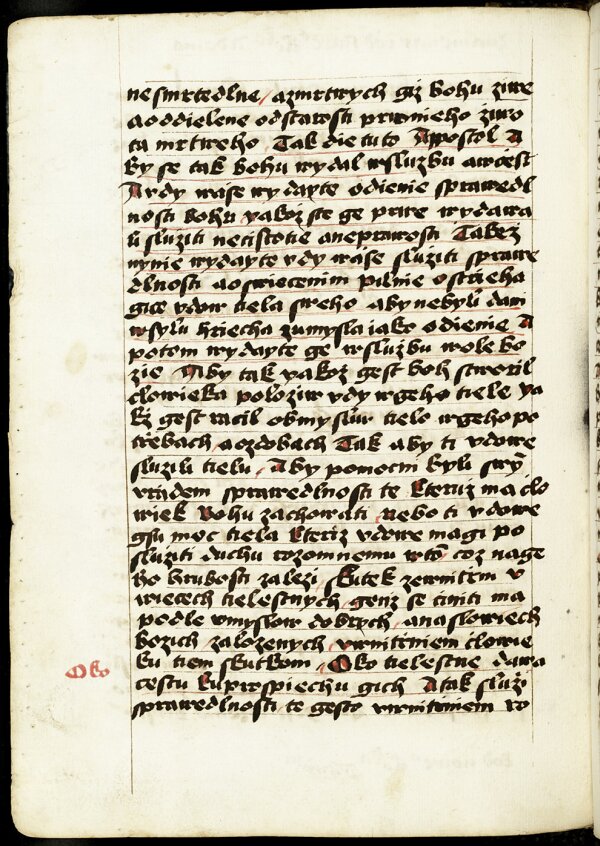 nesmrtedlne / azmrtwych giz bohu ziwe
a oddielene od starosti prwnieho ziwo
ta mrtweho Tak die tuto Apposstol A
by se tak bohu wydal wsluzbu aw cest
Audy wase wydayte odienie sprawedl
nosti bohu yakoz ste ge prwe wydawa
li sluziti necistotie aneprawosti Takez
nynie wydayte udy wase sluziti sprawe
dlnosti a oswiecenim pilnie ostrieha
gice udow tiela sweho aby nebyli dani
wsylu hriecha zumysla jako odienie A
potom wydayte ge wsluzbu wole bo
zie Aby tak yakoz gest boh stworil
clowieka poloziw udy wgeho tiele ya
kz gest racil obmysliw tielo wgeho po
trebach aozdobach Tak aby ti udowe
sluzili tielu / Aby pomocni byli swym
urzadem sprawedlnosti te kteruz ma clo
wiek bohu zachowati nebo ti udowe
gsu moc tiela kteriz udowe magi po
sluziti duchu rozomnemu w tom coz nage
ho hrubosti zalezi / skutek zewnitrni w
wiecech tielestnych genz se ciniti ma
podle umyslow dobrych / ana slowiech
bozich zalozenych / wnitrniem clowie
ku tiem skutkom / Oko tielestne dawa
Oko
cestu kuprospiechu gich Atak sluzi
sprawedlnosti te gesto wnitrniem zo